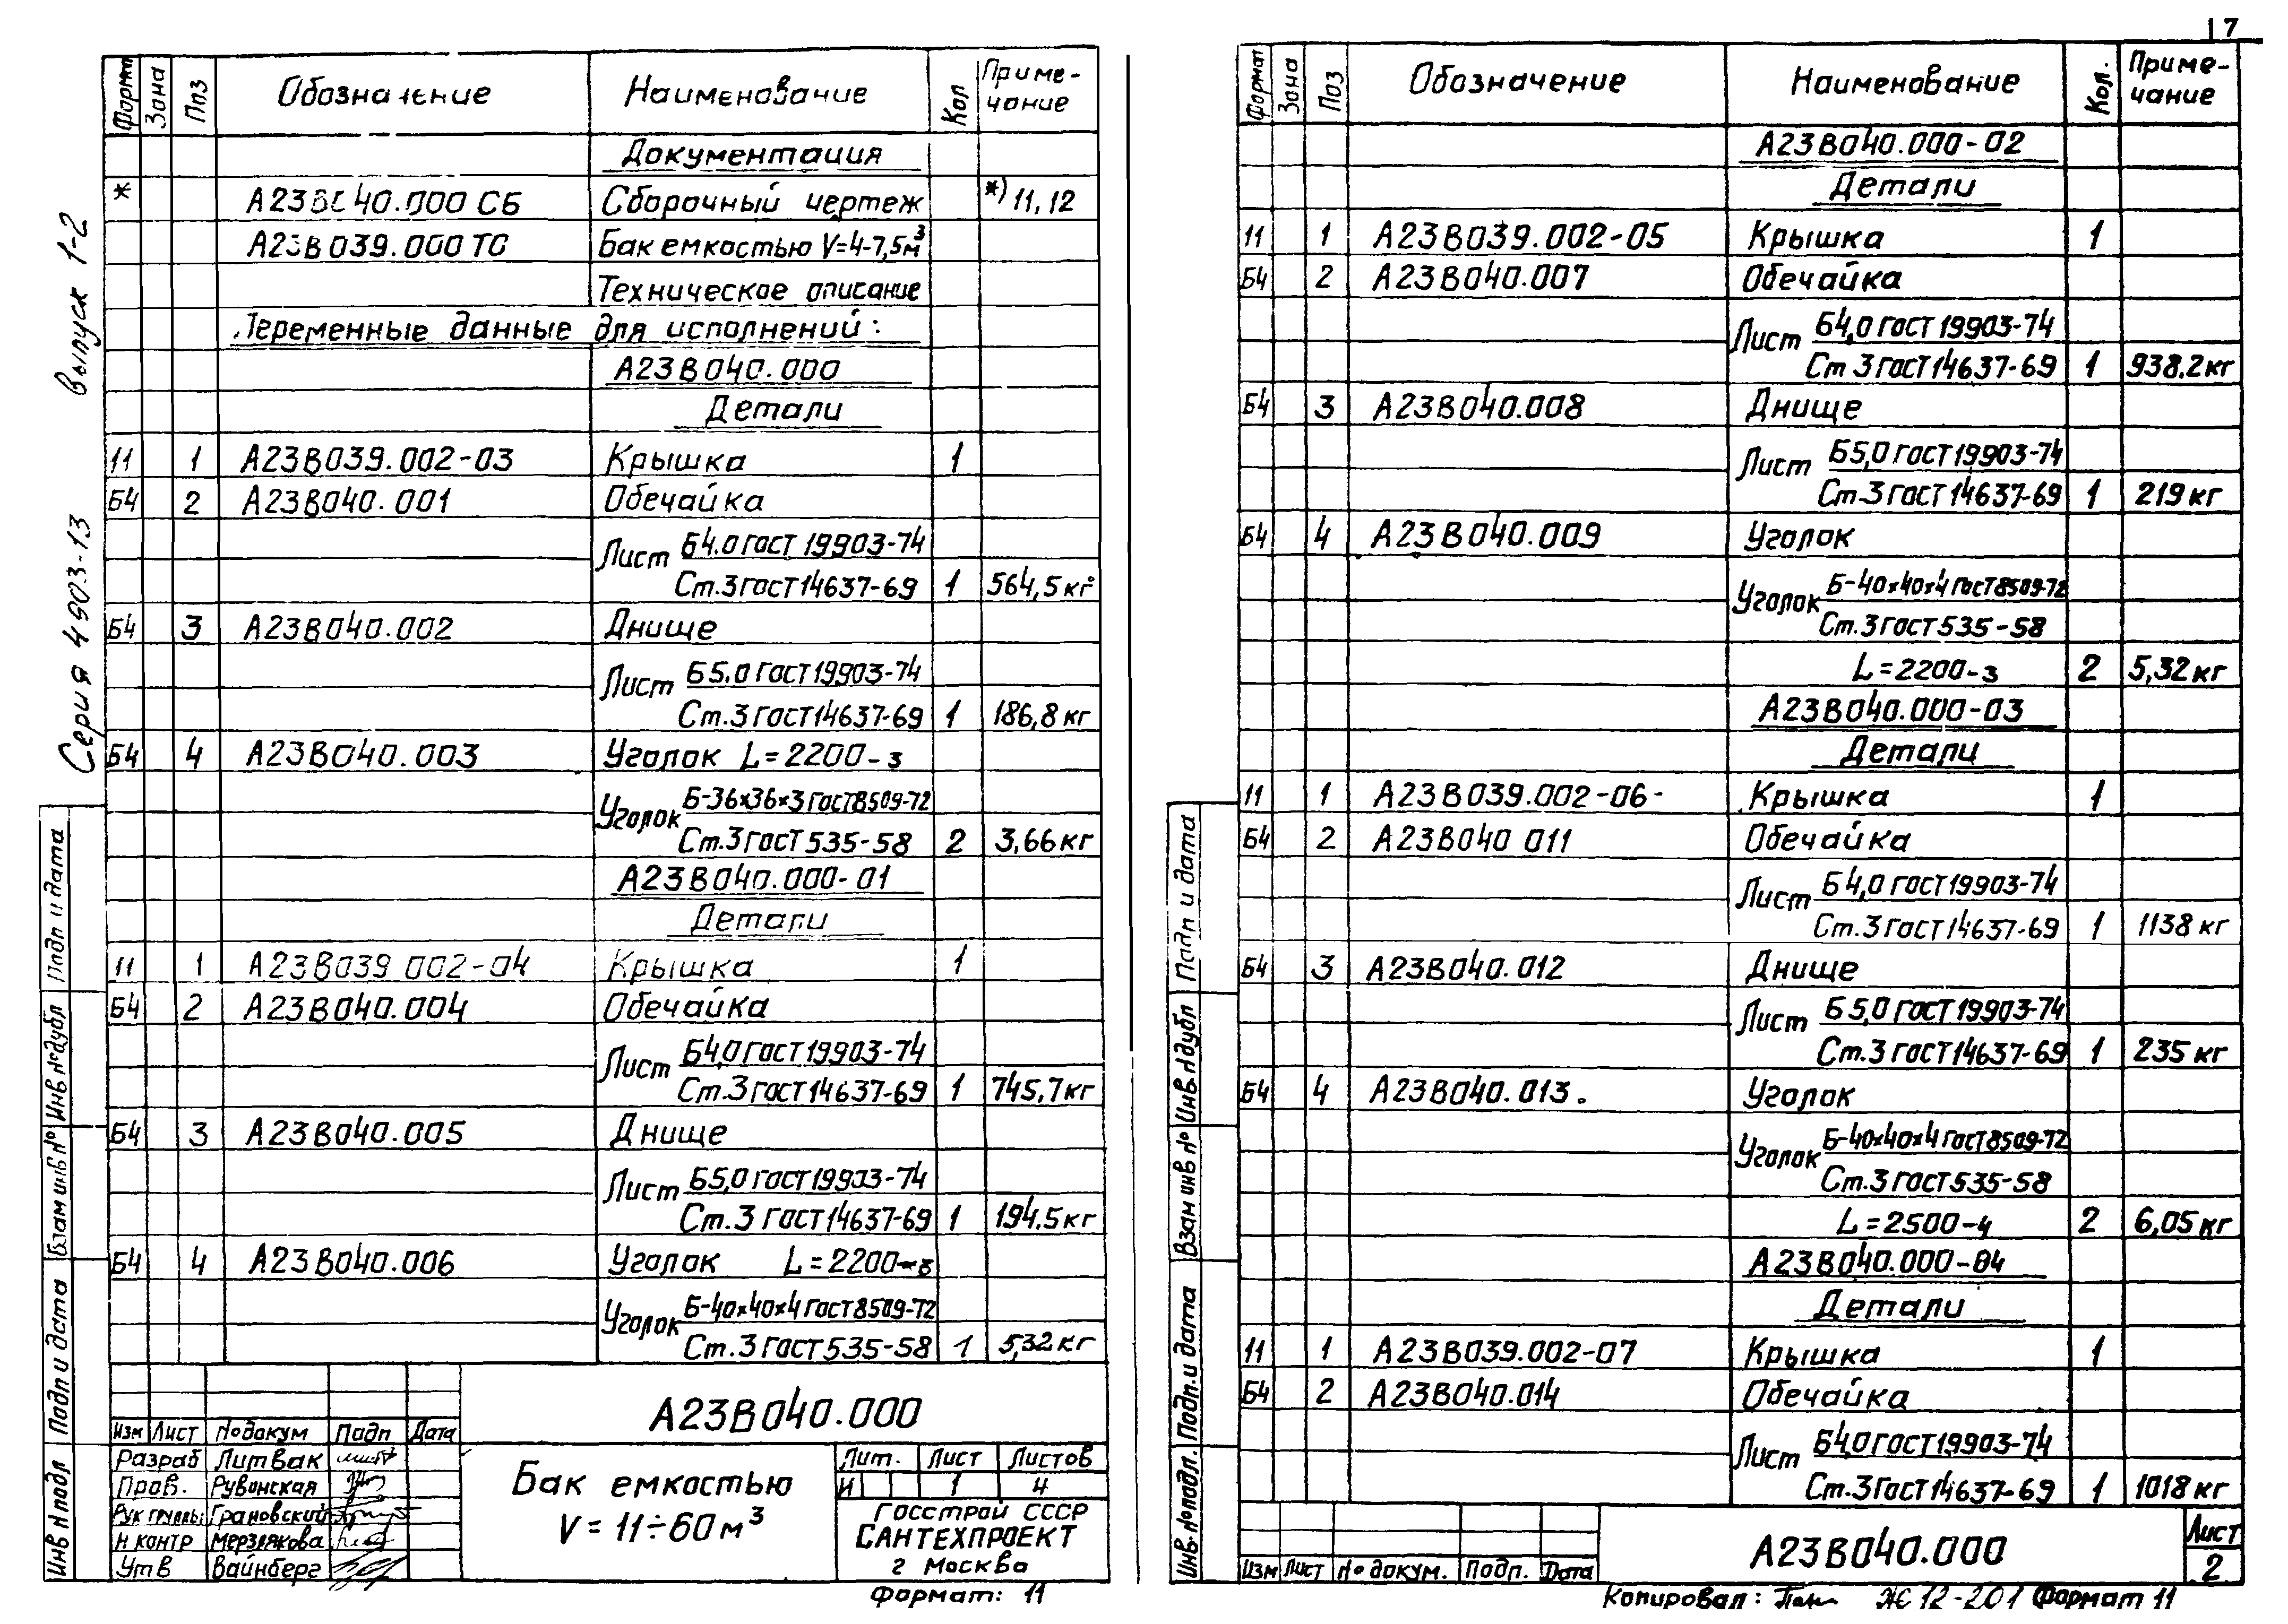 17
Серия 4903-13 выпуск 1-2
Формат Зона Поз Обозначение Наименование Кол Приме-чание
Документация
* А23В040.000 СБ Сборочный чертеж *) 11, 12
А23В039.000 ТО Бак емкостью V=4-7,5м³
Техническое описание
Переменные данные для исполнений:
А23В040.000
Детали
11 1 А23В039.002-03 Крышка 1
Б4 2 А23В040.001 Обечайка
Лист Б4.0 ГОСТ 19903-74
Ст.3 ГОСТ 14637-69 1 564,5 кг
Б4 3 А23В040.002 Днище
Лист Б5.0 ГОСТ 19903-74
Ст.3 ГОСТ 14637-69 1 186,8 кг
Б4 4 А23В040.003 Уголок L=2200-3
Уголок Б-36х36х3 ГОСТ 8509-72
Ст.3 ГОСТ 535-58 2 3,66 кг
А23В040.000-01
Детали
11 1 А23В039 002-04 Крышка 1
Б4 2 А23В040.004 Обечайка
Лист Б4,0 ГОСТ 19903-74
Ст.3 ГОСТ 14637-69 1 745,7 кг
Б4 3 А23В040.005 Днище
Лист Б5,0 ГОСТ 19903-74
Ст.3 ГОСТ 14637-69 1 194.5 кг
Б4 4 А23В040.006 Уголок L=2200-3
Уголок Б-40х40х4 ГОСТ 8509-72
Ст.3 ГОСТ 535-58 1 5,32 кг
А23В040.000
Изм Лист № докум Подп Дата
Разраб Литвак
Пров. Рувинская
Рук группы Грановский
Н контр Мерзлякова
Утв Вайнберг
Бак емкостью
V = 11÷60 м³
Лит. Лист Листов
И 1 4
Госстрой СССР
САНТЕХПРОЕКТ
г Москва
Формат: 11
Инв № подл Подп и дата Взам инв № Инв № дубл Подп и дата
Формат Зона Поз Обозначение Наименование Кол. Приме-чание
А23В040.000-02
Детали
11 1 А23В039.002-05 Крышка 1
Б4 2 А23В040.007 Обечайка
Лист Б4,0 ГОСТ 19903-74
Ст 3 ГОСТ 14637-69 1 938.2 кг
Б4 3 А23В040.008 Днище
Лист Б5,0 ГОСТ 19903-74
Ст.3 ГОСТ 14637-69 1 219 кг
Б4 4 А23В040.009 Уголок
Уголок Б-40х40х4 ГОСТ 8509-72
Ст.3 ГОСТ 535-58
L=2200-3 2 5,32 кг
А23В040.000-03
Детали
11 1 А23В039.002-06 Крышка 1
Б4 2 А23В040 011 Обечайка
Лист Б4,0 ГОСТ 19903-74
Ст.3 ГОСТ 14637-69 1 1138 кг
Б4 3 А23В040.012 Днище
Лист Б5,0 ГОСТ 19903-74
Ст.3 ГОСТ 14637-69 1 235 кг
Б4 4 А23В040.013. Уголок
Уголок Б-40х40х4 ГОСТ 8509-72
Ст.3 ГОСТ 535-58
L=2500-4 2 6,05 кг
А23В040.000-04
Детали
11 1 А23В039.002-07 Крышка 1
Б4 2 А23В040.014 Обечайка
Лист Б4,0 ГОСТ 19903-74
Ст.3 ГОСТ 14637-69 1 1018 кг
Изм Лист № докум. Подп. Дата
А23В040.000
Лист
2
Инв. № подл. Подп. и дата Взам инв № Инв. № дубл Подп и дата
Копировал: ЖС 12-201 Формат 11